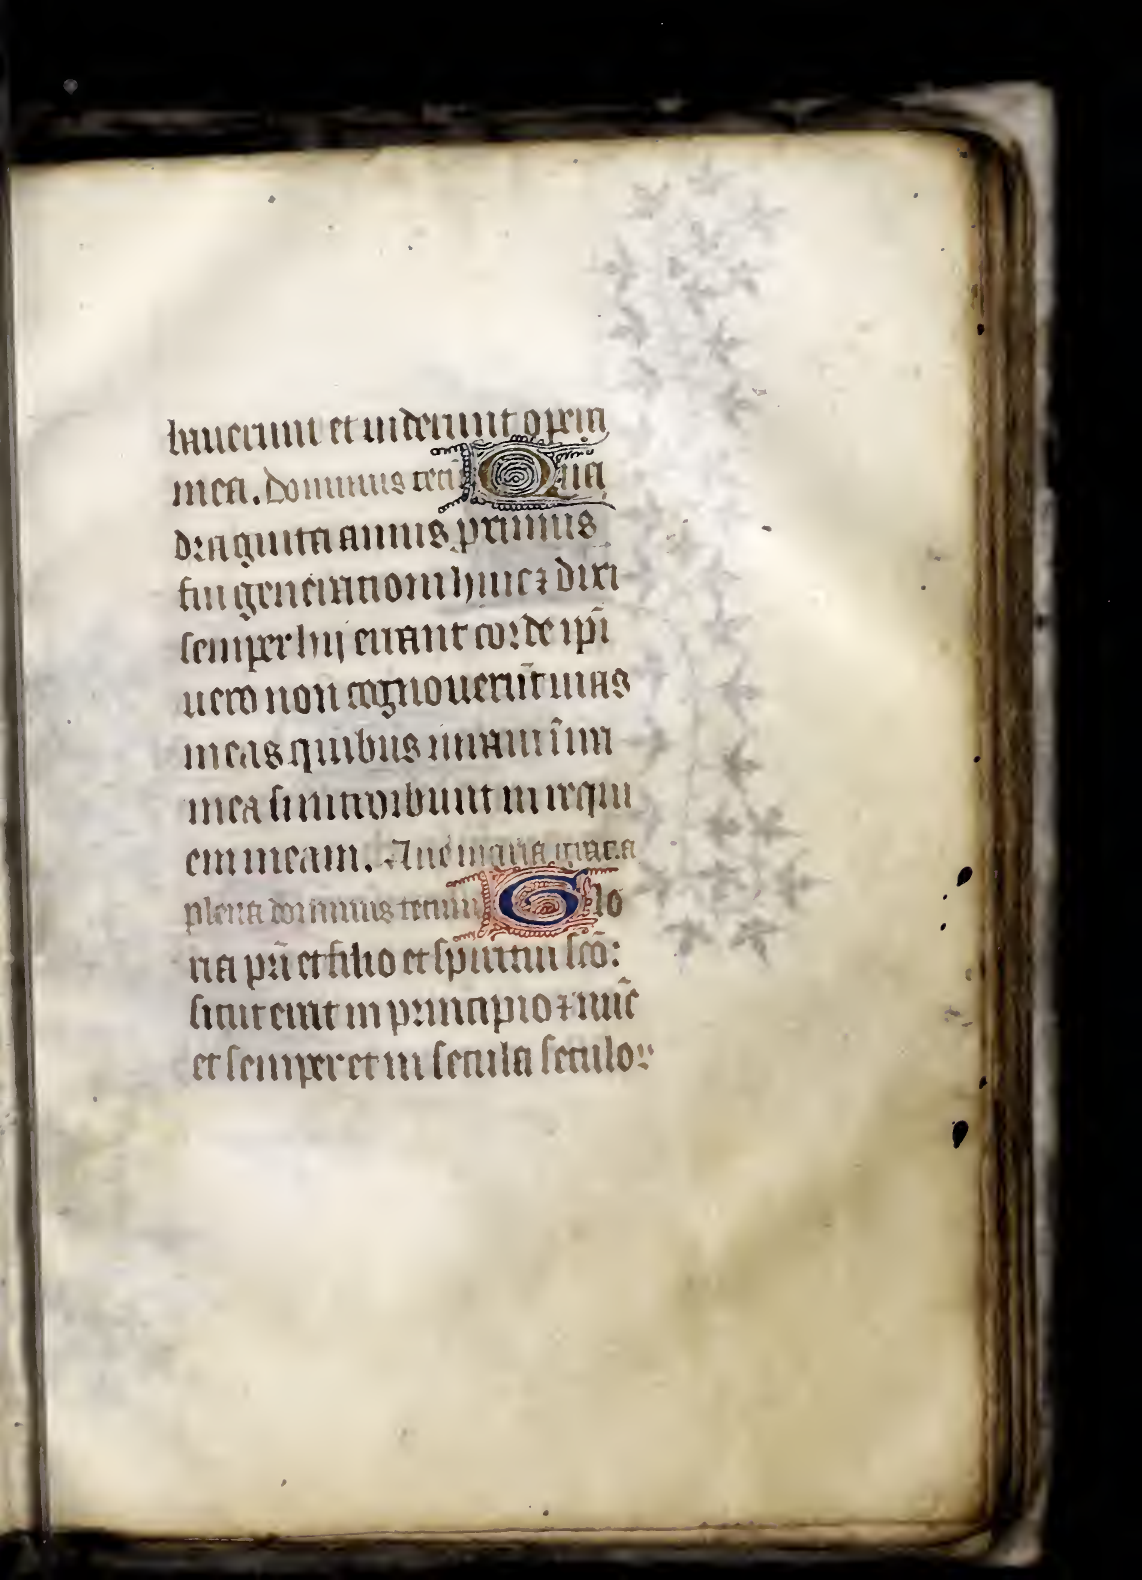 bauerunt et uiderunt opera
mea. Dominus tecū Qua
draginta annis proximus
fui generationi huic ⁊ dixi
semper hij errant corde ipī
uero non cognouerūt uias
meas quibus iuraui ī ira
mea si introibunt in requi
em meam. Aue maria gracia
plena dominus tecum Glo
ria pr̄i et filio et spiritui scō:
sicut erat in principio ⁊ nūc
et semper et in secula seculoꝝ